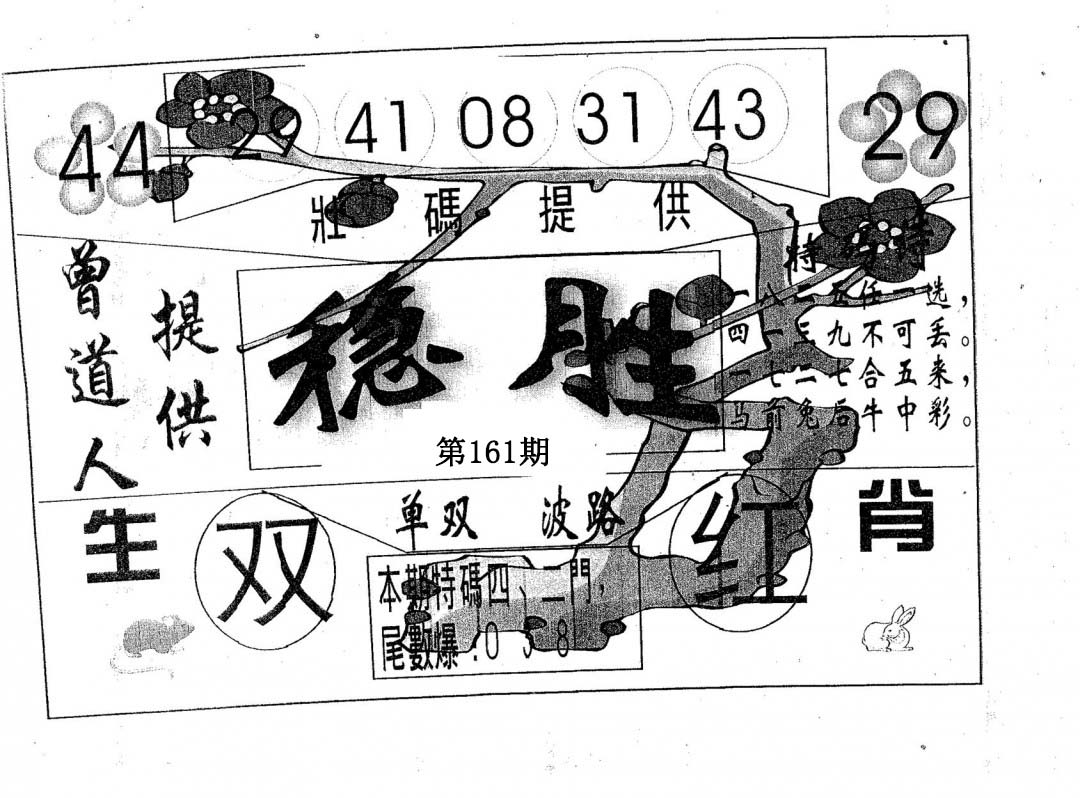 44 29 41 08 31 43 29
壯碼提供
曾道人
提供
稳胜
第161期
特码诗
一八二五任一选，
四一三九不可丢。
一七二七合五来，
马前兔后牛中彩。
生 肖
单双 波路
双 红
本期特碼四、二門，
尾數爆:038